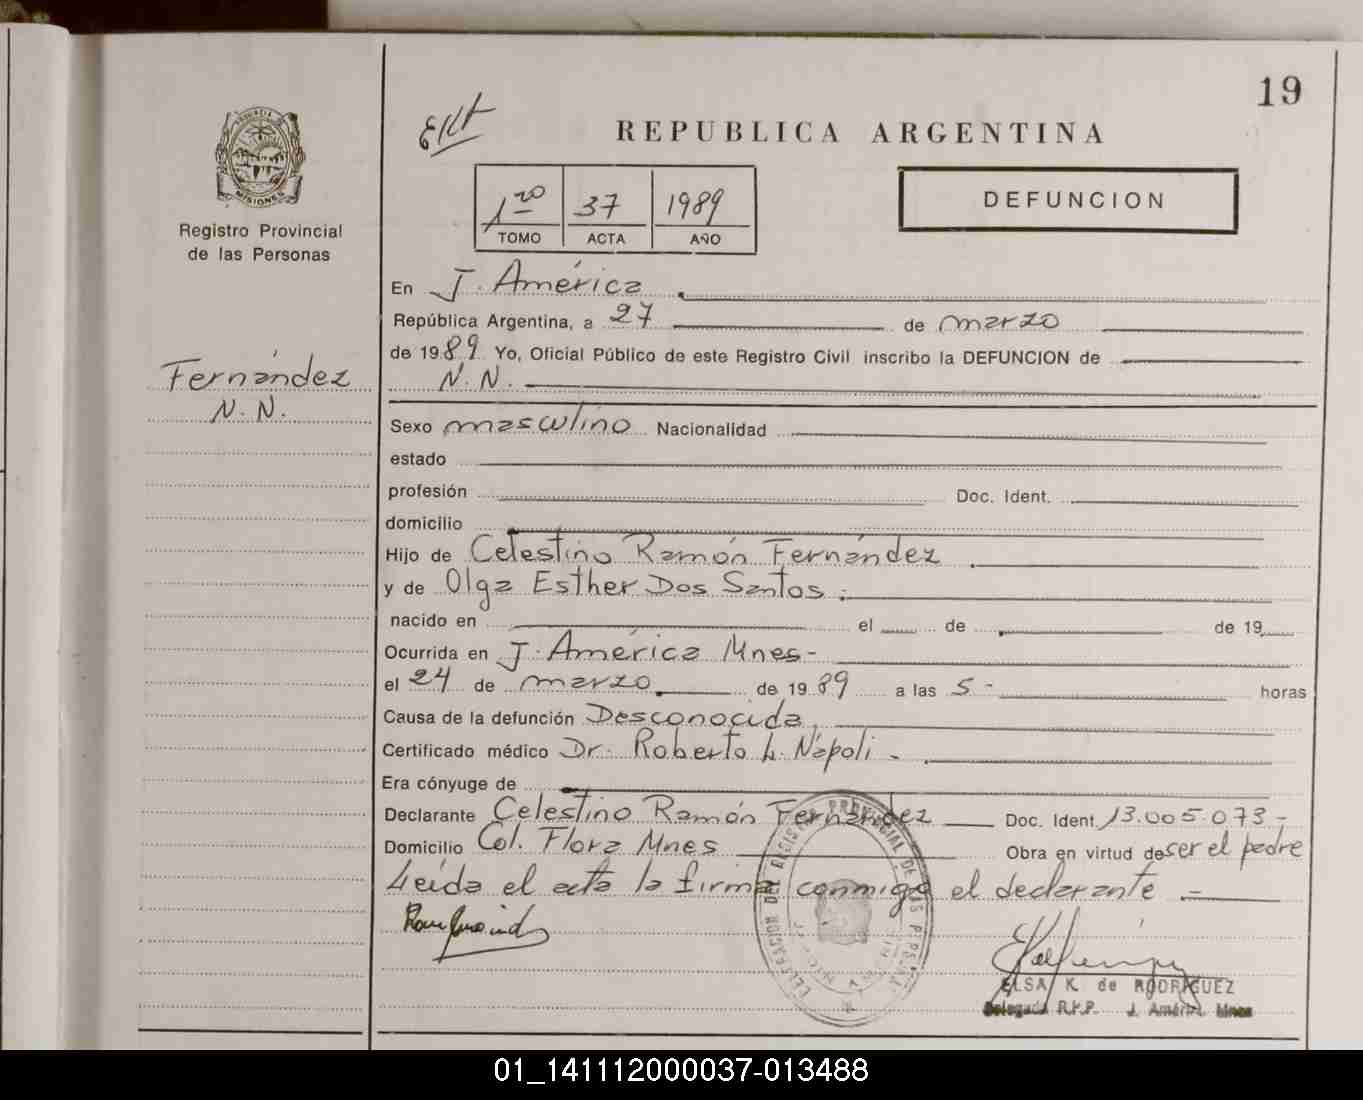 19
REPUBLICA ARGENTINA
1ro 37 1989
TOMO ACTA AÑO
DEFUNCION
PROVINCIA DE
MISIONES
Registro Provincial
de las Personas
Fernández
N. N.
En J. América
República Argentina, a 27 de marzo
de 1989 Yo, Oficial Público de este Registro Civil inscribo la DEFUNCION de
N. N.
Sexo masculino Nacionalidad
estado
profesión Doc. Ident.
domicilio
Hijo de Celestino Ramón Fernández
y de Olga Esther Dos Santos.
nacido en el de de 19
Ocurrida en J. América Mnes-
el 24 de marzo de 1989 a las 5- horas
Causa de la defunción Desconocida
Certificado médico Dr. Roberto L. Nápoli -
Era cónyuge de
Declarante Celestino Ramón Fernández Doc. Ident. 13.005.073-
Domicilio Col. Flora Mnes Obra en virtud de ser el padre
Leída el acta la firma conmigo el declarante -
ELSA K. de RODRIGUEZ
Delegada R.P.P. J. América Mnes
01_141112000037-013488